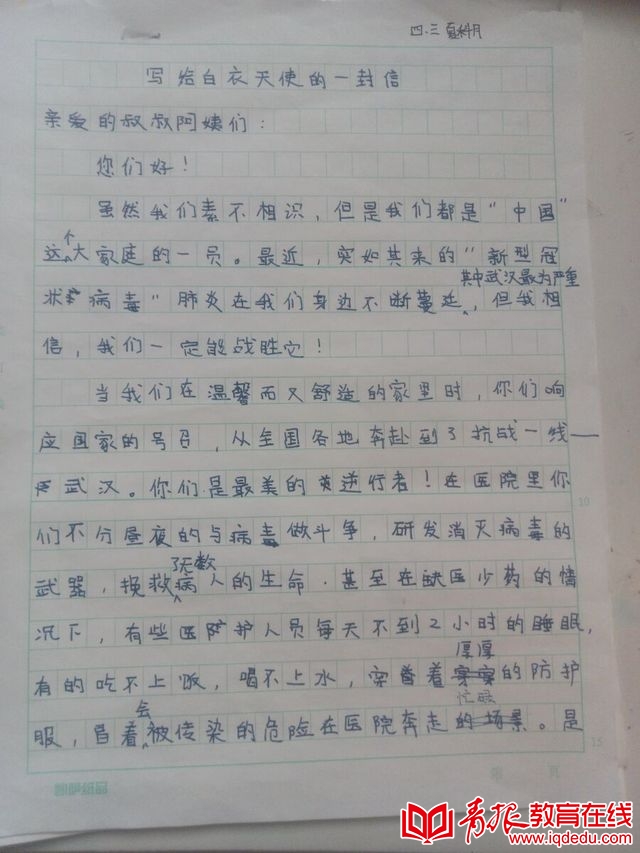 四.三 夏科月
写给白衣天使的一封信
亲爱的叔叔阿姨们：
您们好！
虽然我们素不相识，但是我们都是“中国”
这个大家庭的一员。最近，突如其来的“新型冠
状病毒”肺炎在我们身边不断蔓延，其中武汉最为严重，但我相
信，我们一定能战胜它！
当我们在温馨而又舒适的家里时，你们响
应国家的号召，从全国各地奔赴到了抗战一线——
武汉。你们是最美的逆行者！在医院里你
们不分昼夜的与病毒做斗争，研发消灭病毒的
武器，挽救了无数病人的生命．甚至在缺医少药的情
况下，有些医护人员每天不到2小时的睡眠，
有的吃不上饭，喝不上水，穿着厚厚的防护
服，冒着会被传染的危险在医院奔走忙碌。是
15
10
第 页
青报教育在线
www.iqdedu.com